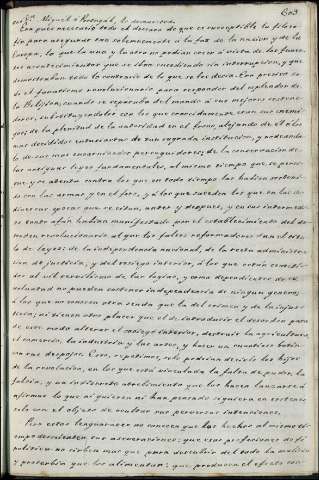 603
con Dn. Miguel de Rosegal, lo renunciase.
Era pues necesario todo el descaro de que es susceptible la filoso-
fía para asegurar tan solemnemente á la faz de la nacion y de la
Europa, lo que la una y la otra no podian creer á vista de los funes-
tos acontecimientos que se iban sucediendo sin interrupcion, y que
demostraban todo lo contrario de lo que se les decia. Era preciso to-
do el fanatismo revolucionario para responder del esplendor de
la Religion, cuando se separaba del mando á sus mejores sostene-
dores, substituyendoles con los que conocidamente eran sus enemi-
gos; de la plenitud de la autoridad en el trono, alejando de él á los
mas decididos entusiastas de tan sagrada institucion, y rodeando-
lo de sus mas encarnizados perseguidores; de la conservacion de
las antiguas leyes fundamentales, al mismo tiempo que se persi-
gue y se atenta contra los que en todo tiempo las habian sosteni-
do con las armas y en el foro, y á los que suceden los que en las
diversas épocas que se citan, antes y despues, y en sus intermedios
su odio habian manifestado por el establecimiento del de-
sorden revolucionario al que los falsos reformadores dan el títu-
lo de leyes; de la independencia nacional, de la recta administra-
cion de justicia, y del sosiego interior, á los que
al vil servilismo de las logias, y como dependientes de su
voluntad no pueden sostener independencia de ningun genero;
á los que no conocen otra senda que la del crimen y de la injus-
ticia; ni tienen otro placer que el de introducir el desorden para
de este modo alterar el sosiego interior, destruir la agricultura,
el comercio, la industria y las artes, y hacer un cuantioso botin
con sus despojos. Esto, repetimos, solo podrian decirlo los hijos
de la revolucion, en los que está vinculada la falta de pudor, la
falsia, y un indiscreto atrevimiento que les hacen lanzarse á
afirmar lo que ni quieren ni han pensado siquiera en sostener
solo con el objeto de ocultar sus perversas intenciones.
Pero estos lenguaraces no conocen que los hechos al mismo ti-
empo desmienten sus aseveraciones: que esas profesiones de fé
política no sirven mas que para descubrir del todo la malicia
y proverbia que los alimentan: que producen el efecto con-